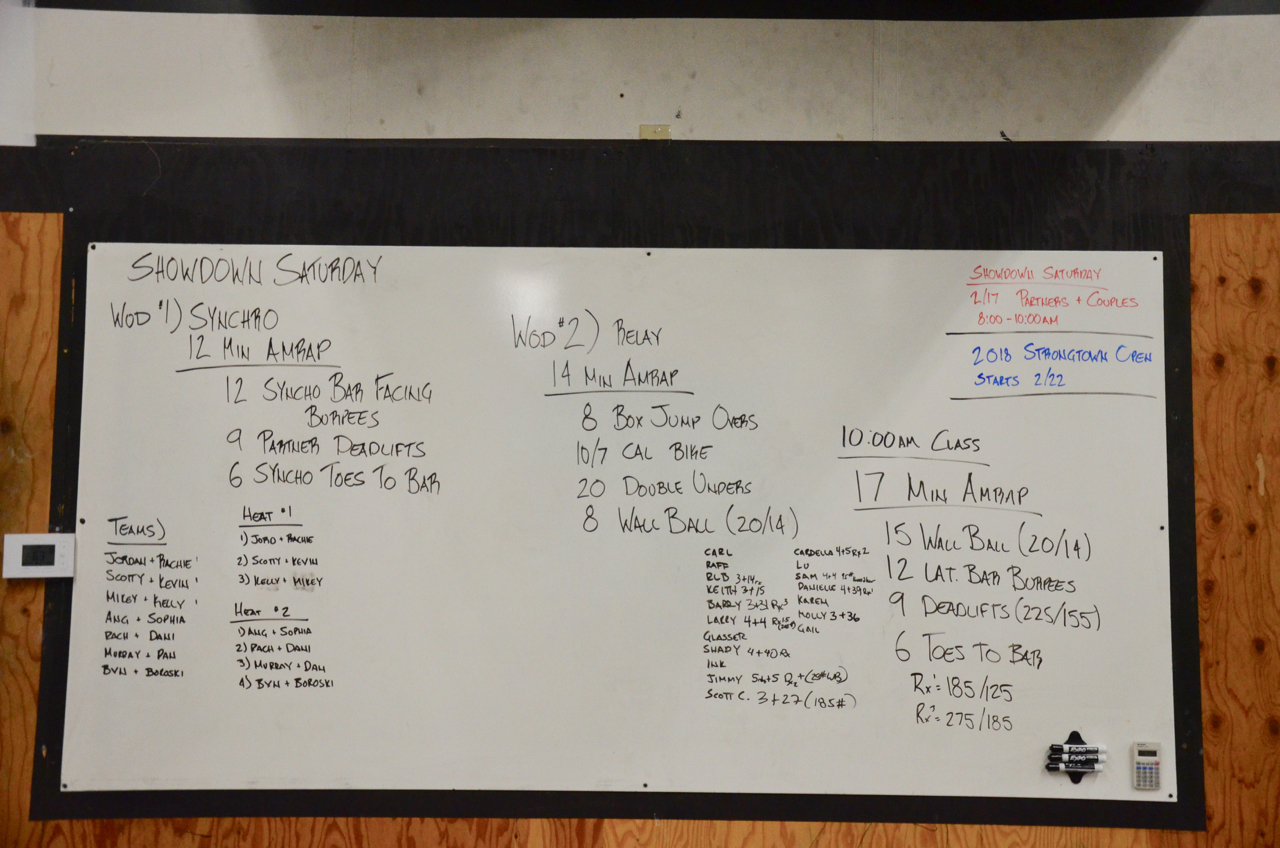 SHOWDOWN SATURDAY
WOD #1) SYNCHRO
12 MIN AMRAP
12 SYNCHO BAR FACING
BURPEES
9 PARTNER DEADLIFTS
6 SYNCHO TOES TO BAR
TEAMS)
JORDAN + RACHIE
SCOTTY + KEVIN
MIKEY + KELLY
ANG + SOPHIA
RACH + DANI
MURRAY + DAN
BVN + BOROSKI
HEAT #1
1) JORD + RACHIE
2) SCOTTY + KEVIN
3) KELLY + MIKEY
HEAT #2
1) ANG + SOPHIA
2) RACH + DANI
3) MURRAY + DAN
4) BVN + BOROSKI
WOD #2) RELAY
14 MIN AMRAP
8 BOX JUMP OVERS
10/7 CAL BIKE
20 DOUBLE UNDERS
8 WALL BALL (20/14)
CARL
RAFF
RLD 3+14
KEITH 3+15
BARRY 3+31 RX
LARRY 4+4
GLASSER
SHADY 4+40 RX
INK
JIMMY
SCOTT C. 3+27 (185#)
CARDELLA 4+5 RX2
LU
SAM 4+4
DANIELLE 4+39
KAREN
HOLLY 3+36
GAIL
SHOWDOWN SATURDAY
2/17 PARTNERS + COUPLES
8:00 - 10:00AM
2018 STRONGTOWN OPEN
STARTS 2/22
10:00AM CLASS
17 MIN AMRAP
15 WALL BALL (20/14)
12 LAT. BAR BURPEES
9 DEADLIFTS (225/155)
6 TOES TO BAR
RX1= 185/125
RX2= 275/185
EXPO
EXPO